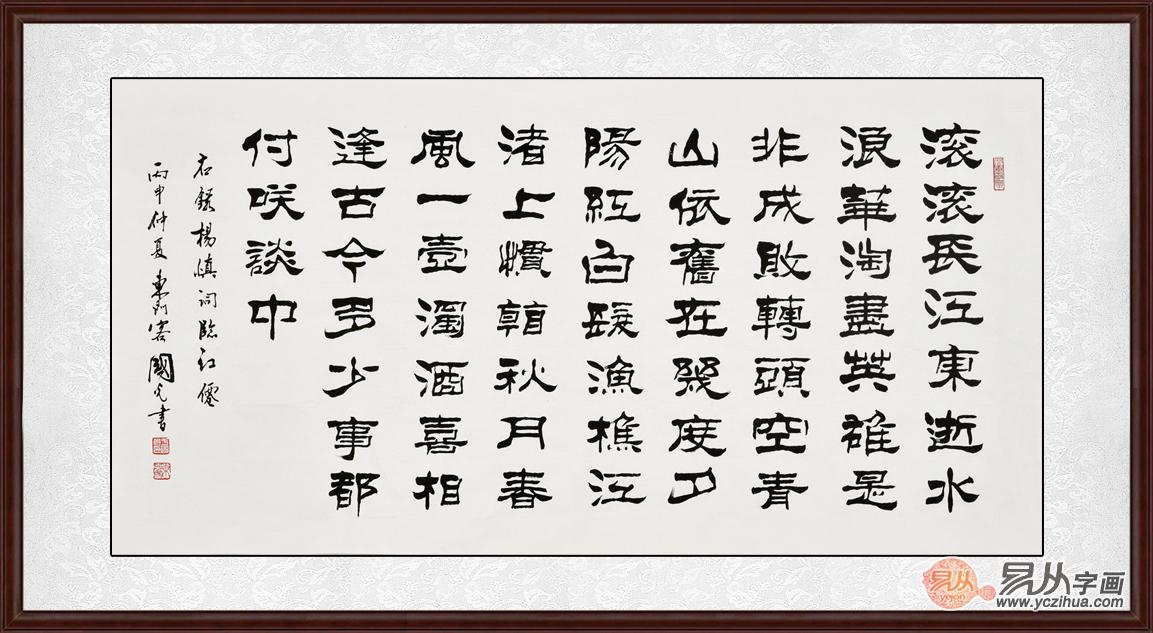 滚滚長江東逝水
浪華淘盡英雄是
非成敗轉頭空青
山依舊在幾度夕
陽紅白髮漁樵江
渚上慣看秋月春
風一壺濁酒喜相
逢古今多少事都
付咲談中
右録楊慎詞臨江僊
丙申仲夏東客國光書
易从
yicion
易从字画
www.yczihua.com